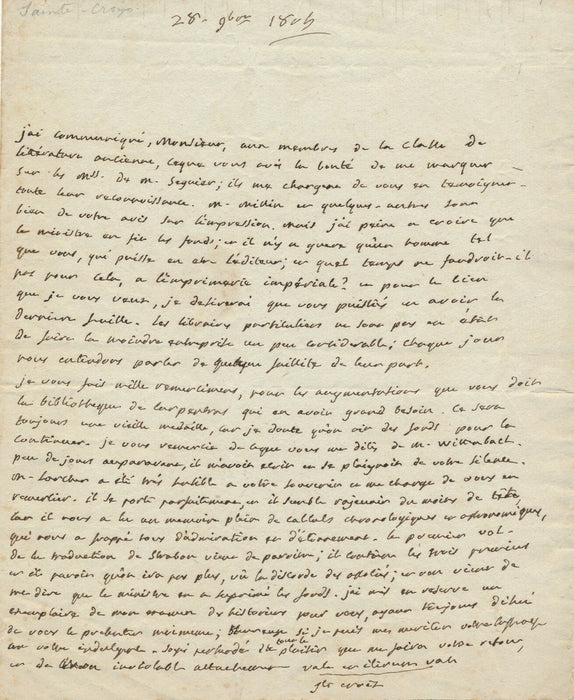 Sainte-Croix
28. 9bre 1805
j'ai communiqué, Monsieur, aux membres de la Classe de
littérature ancienne, ceque vous avés la bonté de me marquer
sur les Mss. de M. Seguier; ils me chargent de vous en temoigner
toute leur reconnaissance. M. Millin et quelques autres sont
bien de votre avis sur l'impression. mais j'ai peine a croire que
le ministre en fit les fonds; et il n'y a guere qu'un homme tel
que vous, qui puisse en etre l'éditeur; et quel temps ne faudroit-il
pas pour cela, a l'imprimerie impériale? et pour le bien
que je vous veux, je desirerai que vous puissiés en avoir la
derniere feuille. Les libraires particuliers ne sont pas en état
de faire la moindre entreprise un peu considerable; chaque jour
nous entendons parler de quelque faillite de leur part.
je vous fais mille remercimens, pour les augmentations que vous doit
la bibliotheque de Carpentras qui en avoit grand besoin. Ce sera
toujours une vieille medaille, car je doute qu'on ait des fonds pour la
continuer. je vous remercie de ceque vous me dites de M. Wittenbach.
peu de jours auparavant, il m'avoit ecrit en se plaignant de votre silence.
M. Larcher a été très sensible a votre souvenir et me charge de vous en
remercier. il se porte parfaitement, et il semble rajeunir du moins de tête
car il nous a lu un memoire plein de calculs chronologiques et astronomiques,
qui nous a frappé tous d'admiration et d'étonnement. le premier vol.
de la traduction de Strabon vient de paroitre; il contient les trois premiers
et il paroit qu'on n'ira pas plus, vû la discorde des ; et on vient de
me dire que le ministre en a supprimé les fonds. j'ai mis en reserve un
exemplaire de mon examen des historiens pour vous, ayant toujours désiré
de vous le presenter moi-meme; heureux si je puis meriter votre suffrage
ou votre indulgence. soyés persuadé de tout le plaisir que me feroit votre retour,
et de mon inviolable attachement vale et iterum vale
Ste Croix